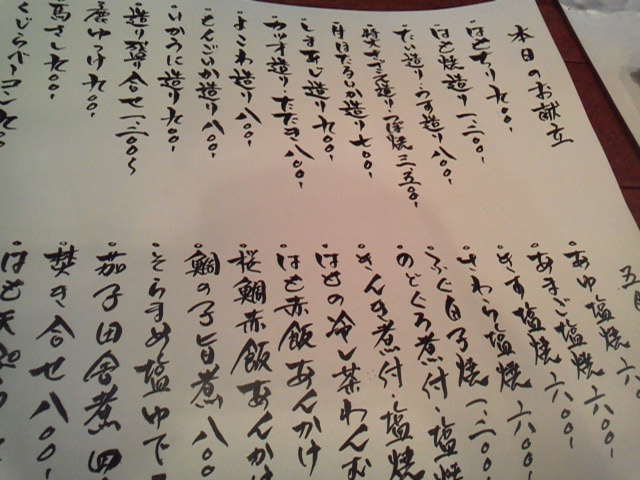 本日のお献立
・はもちり 九〇〇、
・はも焼造り 一、二〇〇、
・たい造り・うす造り 八〇〇、
・活さざえ造り・つぼ焼 三、五〇〇、
・生ほたるいか造り 七〇〇、
・しまあじ造り 九〇〇、
・カツオ造り・たたき 八〇〇、
・よこわ造り 八〇〇、
・もんごいか造り 八〇〇、
・いかうに造り 九〇〇、
・造り盛り合せ 一、二〇〇〜
・馬さし 九〇〇、
・くじらベーコン 九〇
・あゆ塩焼 六〇〇、
・あまご塩焼 六〇〇、
・きす塩焼 六〇〇、
・さわら塩焼
・ふぐ白子焼 一、二〇〇、
・のどぐろ煮付・塩焼
・きんき煮付・塩焼
・はもの冷し茶わんむ
・はも赤飯あんかけ
・桜鯛赤飯あんかけ
・鯛の子旨煮 八〇〇
・そらまめ塩ゆで
・茄子田舎煮 四
・焚き合せ 八〇〇、
・はも天ぷら